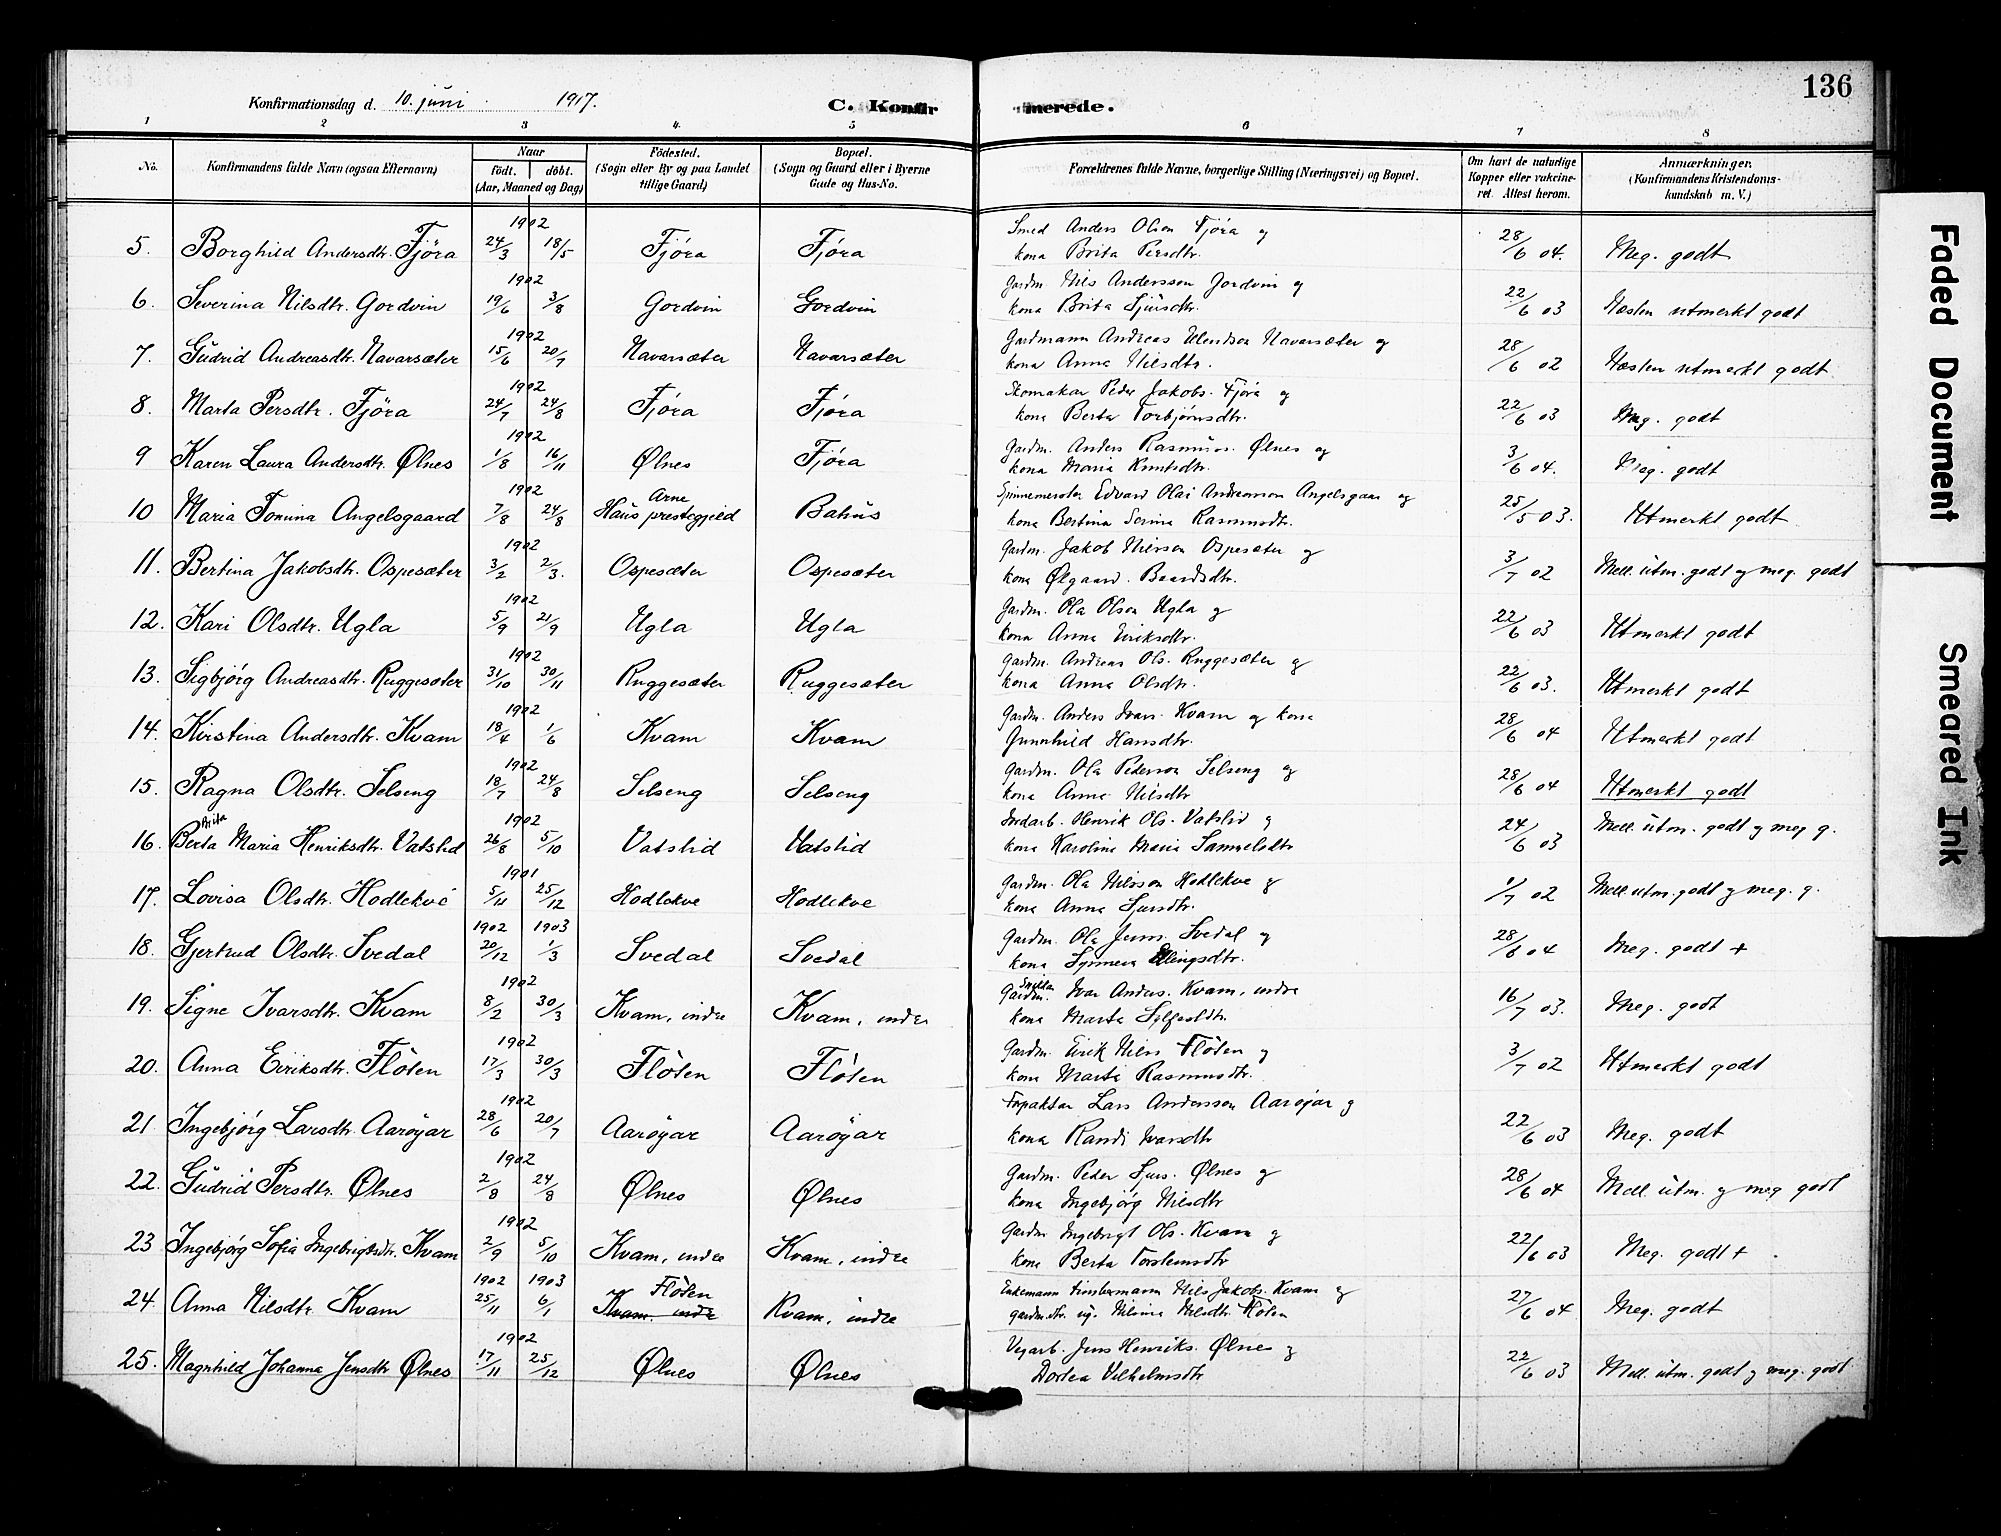 136
Konfirmationsdag d. 10. juni 1917.
C. Konfirmerede.
1 2 3 4. 5 6 7 8
No. Konfirmandens fulde Navn (ogsaa Efternavn) Naar födt. döbt. (Aar, Maaned og Dag) Födested. (Sogn eller By og paa Landet tillige Gaard) Bopæl. (Sogn og Gaard eller i Byerne Gade og Hus-No. Forældrenes fulde Navne, borgerlige Stilling (Næringsvei) og Bopæl. Om havt de naturlige Kopper eller vakcineret. Attest herom. Anmærkninger. (Konfirmandens Kristendomskundskab m. V.)
5. Borghild Andersdtr. Fjöra 1902 24/3 18/5 Fjöra Fjöra Smed Anders Olsen Fjöra og kona Brita Persdtr. 28/6 04. Meg. godt
6. Severina Nilsdtr. Gordvin 1902 19/6 3/8 Gordvin Gordvin Gardm. Nils Andersson Gordvin og kona Brita Sjursdtr. 22/6 03 Næsten utmerkt godt
7. Gudrid Andreasdtr. Navarsæter 1902 15/6 20/7 Navarsæter Navarsæter Gardmann Andreas Navarsæter og kona Anna Nilsdtr. 28/6 02 Næsten utmerkt godt
8. Marta Persdtr. Fjöra 1902 24/7 24/8 Fjöra Fjöra Skomakar Peder Jakobs. Fjöra og kona Berta Torbjörnsdtr. 22/6 03 Meg. godt
9 Karen Laura Andersdtr. Ølnes 1902 1/8 16/11 Ølnes Fjöra Gardm. Anders Rasmus. Ølnes og kona Maria Knutsdtr. 3/6 04. Meg. godt
10 Maria Tomina Angelsgaard 1902 7/8 24/8 Arne Haus prestegjeld Bahus Spinnemester Edvard Olai Andreasson Angelsgaar og kona Bertina Serina Rasmusdtr. 25/5 03. Utmerkt godt
11. Bertina Jakobsdtr. Ospesæter 1902 3/2 2/3. Ospesæter Ospesæter Gardm. Jakob Nilsson Ospesæter og kona Ølgaard. Baardsdtr. 3/7 02 Mell. utm. godt og meg. godt
12. Kari Olsdtr. Ugla 1902 5/9 21/9 Ugla Ugla Gardm. Ola Olson Ugla og kona Anna Eiriksdtr. 22/6 03 Utmerkt godt
13. Sigbjörg Andreasdtr. Ruggesæter 1902 31/10 30/11 Ruggesæter Ruggesæter Gardm. Andreas Ols. Ruggesæter og kona Anna Olsdtr. 22/6 03. Utmerkt godt
14. Kirstina Andersdtr. Kvam 1902 18/4 1/6 Kvam Kvam Gardm. Anders Ivars. Kvam og kona Gunnhild Hansdtr. 28/6 04 Utmerkt godt
15. Ragna Olsdtr. Selseng 1902 18/7 24/8 Selseng Selseng Gardm. Ola Pederson Selseng og kona Anna Nilsdtr 28/6 04 Utmerkt godt
16. Berta Brita Maria Henriksdtr. Vatslid 1902 26/8 5/10 Vatslid Vatslid Jordarb. Henrik Ols. Vatslid og kona Karolina Maria Samuelsdtr 24/6 03 Mell. utm. godt og meg g.
17. Lovisa Olsdtr. Hodlekve 1901 5/11 25/12 Hodlekve Hodlekve Gardm. Ola Nilsson Hodlekve og kona Anna Sjursdtr. 1/7 02 Mell. utm. godt og meg. g.
18. Gjertrud Olsdtr. Svedal 1902 1903 20/12 1/3 Svedal Svedal Gardm. Ola Jens. Svedal og kona Synneva Ellingsdtr. 28/6 04 Meg. godt +
19. Signe Ivarsdtr. Kvam 1902 8/2 30/3 Kvam, indre Kvam, indre Gardm. Ivar Anders. Kvam, indre kona Marta Sylfestdtr. 16/7 03. Meg. godt
20. Anna Eiriksdtr. Flöten 1902 17/3 30/3 Flöten Flöten Gardm. Eirik Nils Flöten og kona Marta Rasmusdtr. 3/7 02 Utmerkt godt
21 Ingebjörg Larsdtr. Aaröyar 1902 28/6 20/7 Aaröyar Aaröyar Forpaktar Lars Andersson Aaröyar og kona Randi Ivarsdtr 22/6 03 Meg. godt
22. Gudrid Persdtr. Ølnes 1902 2/8 24/8 Ølnes Ølnes Gardm. Peder Sjurs. Ølnes og kona Ingebjörg Nilsdtr 28/6 04 Mell. utm. og meg godt
23 Ingebjörg Sofia Ingebrigtsdtr. Kvam 1902 2/9 5/10 Kvam, indre Kvam, indre Gardm. Ingebrigt Ols. Kvam og kona Berta Torsteinsdtr 22/6 03 Meg. godt +
24. Anna Nilsdtr. Kvam 1902 1903 25/11 6/1 Flöten Kvam indre Kvam, indre Enkemann timbermann Nils Jakobs. Kvam og gardm.dtr. ug. Nilsdtr. Flöten 27/6 04 Meg. godt
25. Magnhild Johanna Jensdtr Ølnes 1902 17/11 25/12 Ølnes Ølnes Vegarb. Jens Henriks. Ølnes og Dortea Vilhelmsdtr 22/6 03 Mell. utm. godt og meg. godt
Faded Document
Smeared Ink